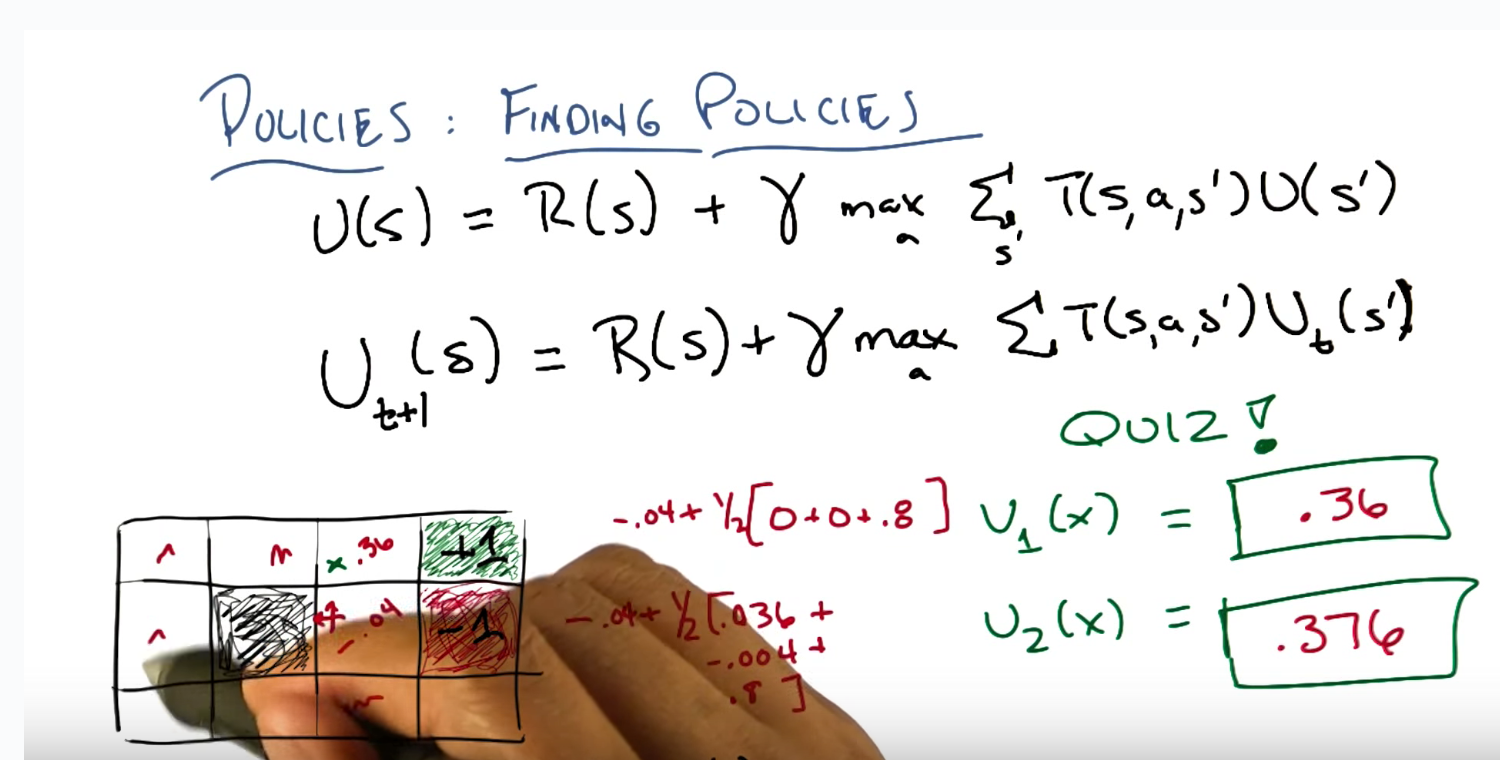 POLICIES: FINDING POLICIES
U(s) = R(s) + γ max_a Σ_s' T(s,a,s')U(s')
U_t+1(s) = R(s) + γ max_a Σ T(s,a,s')U_t(s')
QUIZ!
-.04 + 1/2[0+0+.8] U_1(x) = .36
x .36 +1
-.04 + 1/2[.036 +
-.004 +
.8]
U_2(x) = .376
-.04 -1